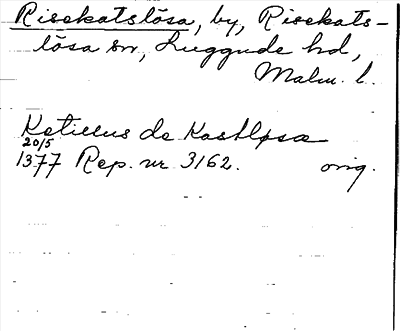 Risekatslösa, by, Risekats-
lösa sn, Luggude hd,
Malm. l.
Ketillus de Kastløsæ
20/5
1377 Rep. nr 3162. orig.